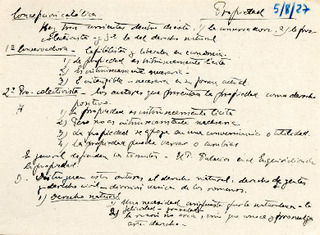 Concepción católica        Propiedad  5/8/27
Hay tres corrientes dentro de ella: 1) la conservadora. 2) la pro-
colectivista y 3) la del derecho natural.
1ª Conservadora - Capitalista y liberal en economía.
1) La propiedad es intrínsecamente lícita
2) Es intrínsecamente necesaria
3) E intangible - necesaria en su forma actual
2ª Pro-colectivista - los autores que presentan la propiedad como derecho
positivo.
1) La propiedad es intrínsecamente lícita
2) Pero no es intrínsecamente necesaria
3) La propiedad se apoya en una conveniencia o utilidad.
4) La propiedad puede variar o cambiar
En general dependen de - P. Palacios en
la propiedad
3. Distinguen estos autores el derecho natural, derecho de gentes
y derecho civil - de los romanos.
1) Derecho natural
1) Una necesidad que la naturaleza - la
felicidad -
2) la razón no crea, sino que conoce y promulga
este derecho -